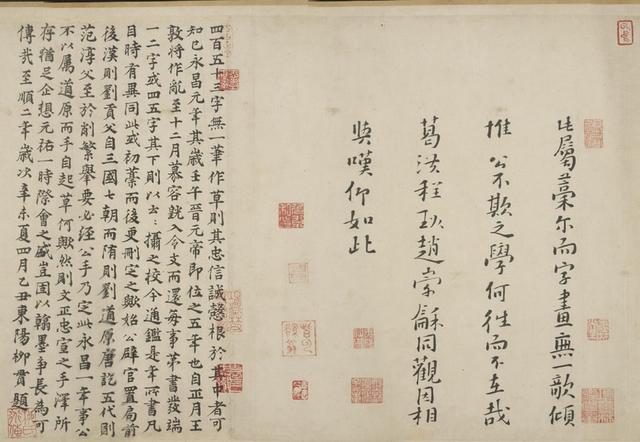 此屬藁尔而字畫無一欹傾
惟公不欺之學何往而不在哉
葛洪程珌趙崇龢同觀因相
與嘆仰如此
四百五十三字無一筆作草則其忠信誠慤根於其中者可
知已永昌元年其歲壬午晉元帝即位之五年也自正月王
敦將作亂至十二月慕容皝入令支而還每事第書發端
一二字或四五字其下則以云々攝之校今通鑑是年所書凡
目時有異同此或初藁而後更刪定之歟始公辟官置局前
後漢則劉貢父自三國七朝而隋則劉道原唐訖五代則
范淳父至於削繁舉要必經公手乃定此永昌一年事公
不以屬道原而手自起草何歟然則文正忠宣之手澤所
存猶足企想元祐一時際會之盛豈固以翰墨爭長為可
傳哉至順二年歲次辛未夏四月乙丑東陽柳貫題